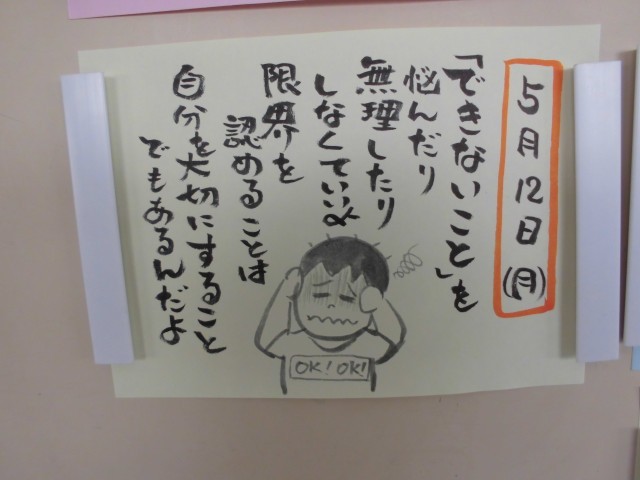 5月12日(月)
「できないこと」を
悩んだり
無理したり
しなくていい〆
限界を
認めることは
自分を大切にすること
でもあるんだよ
OK! OK!